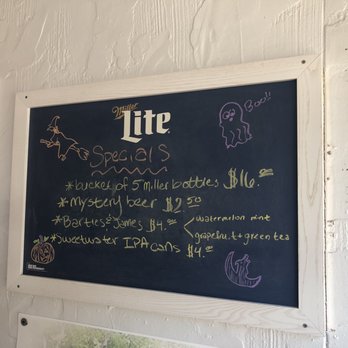 Miller
Lite
Boo!!
Specials
*bucket of 5 miller bottles $16.00
*Mystery beer $2.50
*Bartles & James $4.00 < watermelon mint
grapefruit + green tea
*Sweetwater IPA cans $4.00